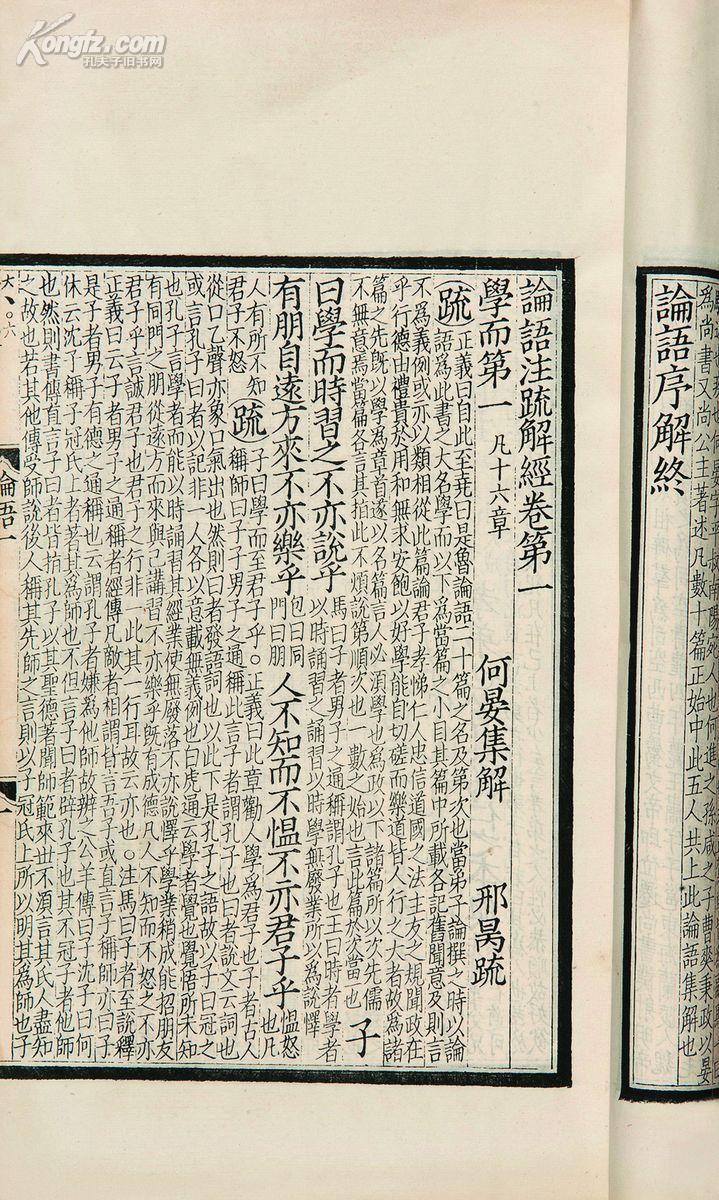 叔南陽宛人也何進之孫咸之子曹爽秉政以晏
為尚書又尚公主著述凡數十篇正始中此五人共上此論語集解也
論語序解終
論語注疏解經卷第一
學而第一 凡十六章 何晏集解 邢昺疏
疏 正義曰自此至堯曰是魯論語二十篇之名及第次也當弟子論撰之時以論
語為此書之大名學而以下為當篇之小目其篇中所載各記舊聞意及則言
不為義例或亦以類相從此篇論君子孝悌仁人忠信道國之法主友之規聞政在
乎行德由禮貴於用和無求安飽以好學能自切磋而樂道皆人行之大者故為諸
篇之先既以學為章首遂以名篇言人必須學也為政以下諸篇所以次先儒
不無意焉當篇各言其指此不煩說第順次也一數之始也言此篇於次當一也 子
曰學而時習之不亦說乎 馬曰子者男子之通稱謂孔子也王曰時者學者
以時誦習之誦習以時學無廢業所以為說懌
有朋自遠方來不亦樂乎 包曰同門曰朋 人不知而不慍不亦君子乎 慍怒也凡
人有所不知君子不怒 疏 子曰學而至君子乎。正義曰此章勸人學為君子也子者古人
稱師曰子子男子之通稱此言子者謂孔子也曰者說文云詞也
從口乙聲亦象口氣出也然則曰者發語詞也以此下是孔子之語故以子曰冠之
或言孔子曰者以記非一人各以意載無義例也白虎通云學者覺也覺悟所未知
也孔子言學者而能以時誦習其經業使無廢落不亦說懌乎學業稍成能招朋友
有同門之朋從遠方而來與己講習不亦樂乎既有成德凡人不知而不怒之不亦
君子乎言誠君子也君子之行非一此其一行耳故云亦也。注馬曰子者至說懌
正義曰云子者男子之通稱者經傳凡敵者相謂皆言吾子或直言子稱師亦曰子
是子者男子有德之通稱也云謂孔子者嫌為他師故辨之公羊傳曰子沈子曰何
休云沈子稱子冠氏上者著其為師也不但言子曰者辟孔子也其不冠子者他師
也然則書傳直言子曰者皆指孔子以其聖德著聞師範來世不須言其氏人盡知
之故也若其他傳受師說後人稱其先師之言則以子冠氏上所以明其為師也子
論語一
Kongfz.com
孔夫子旧书网